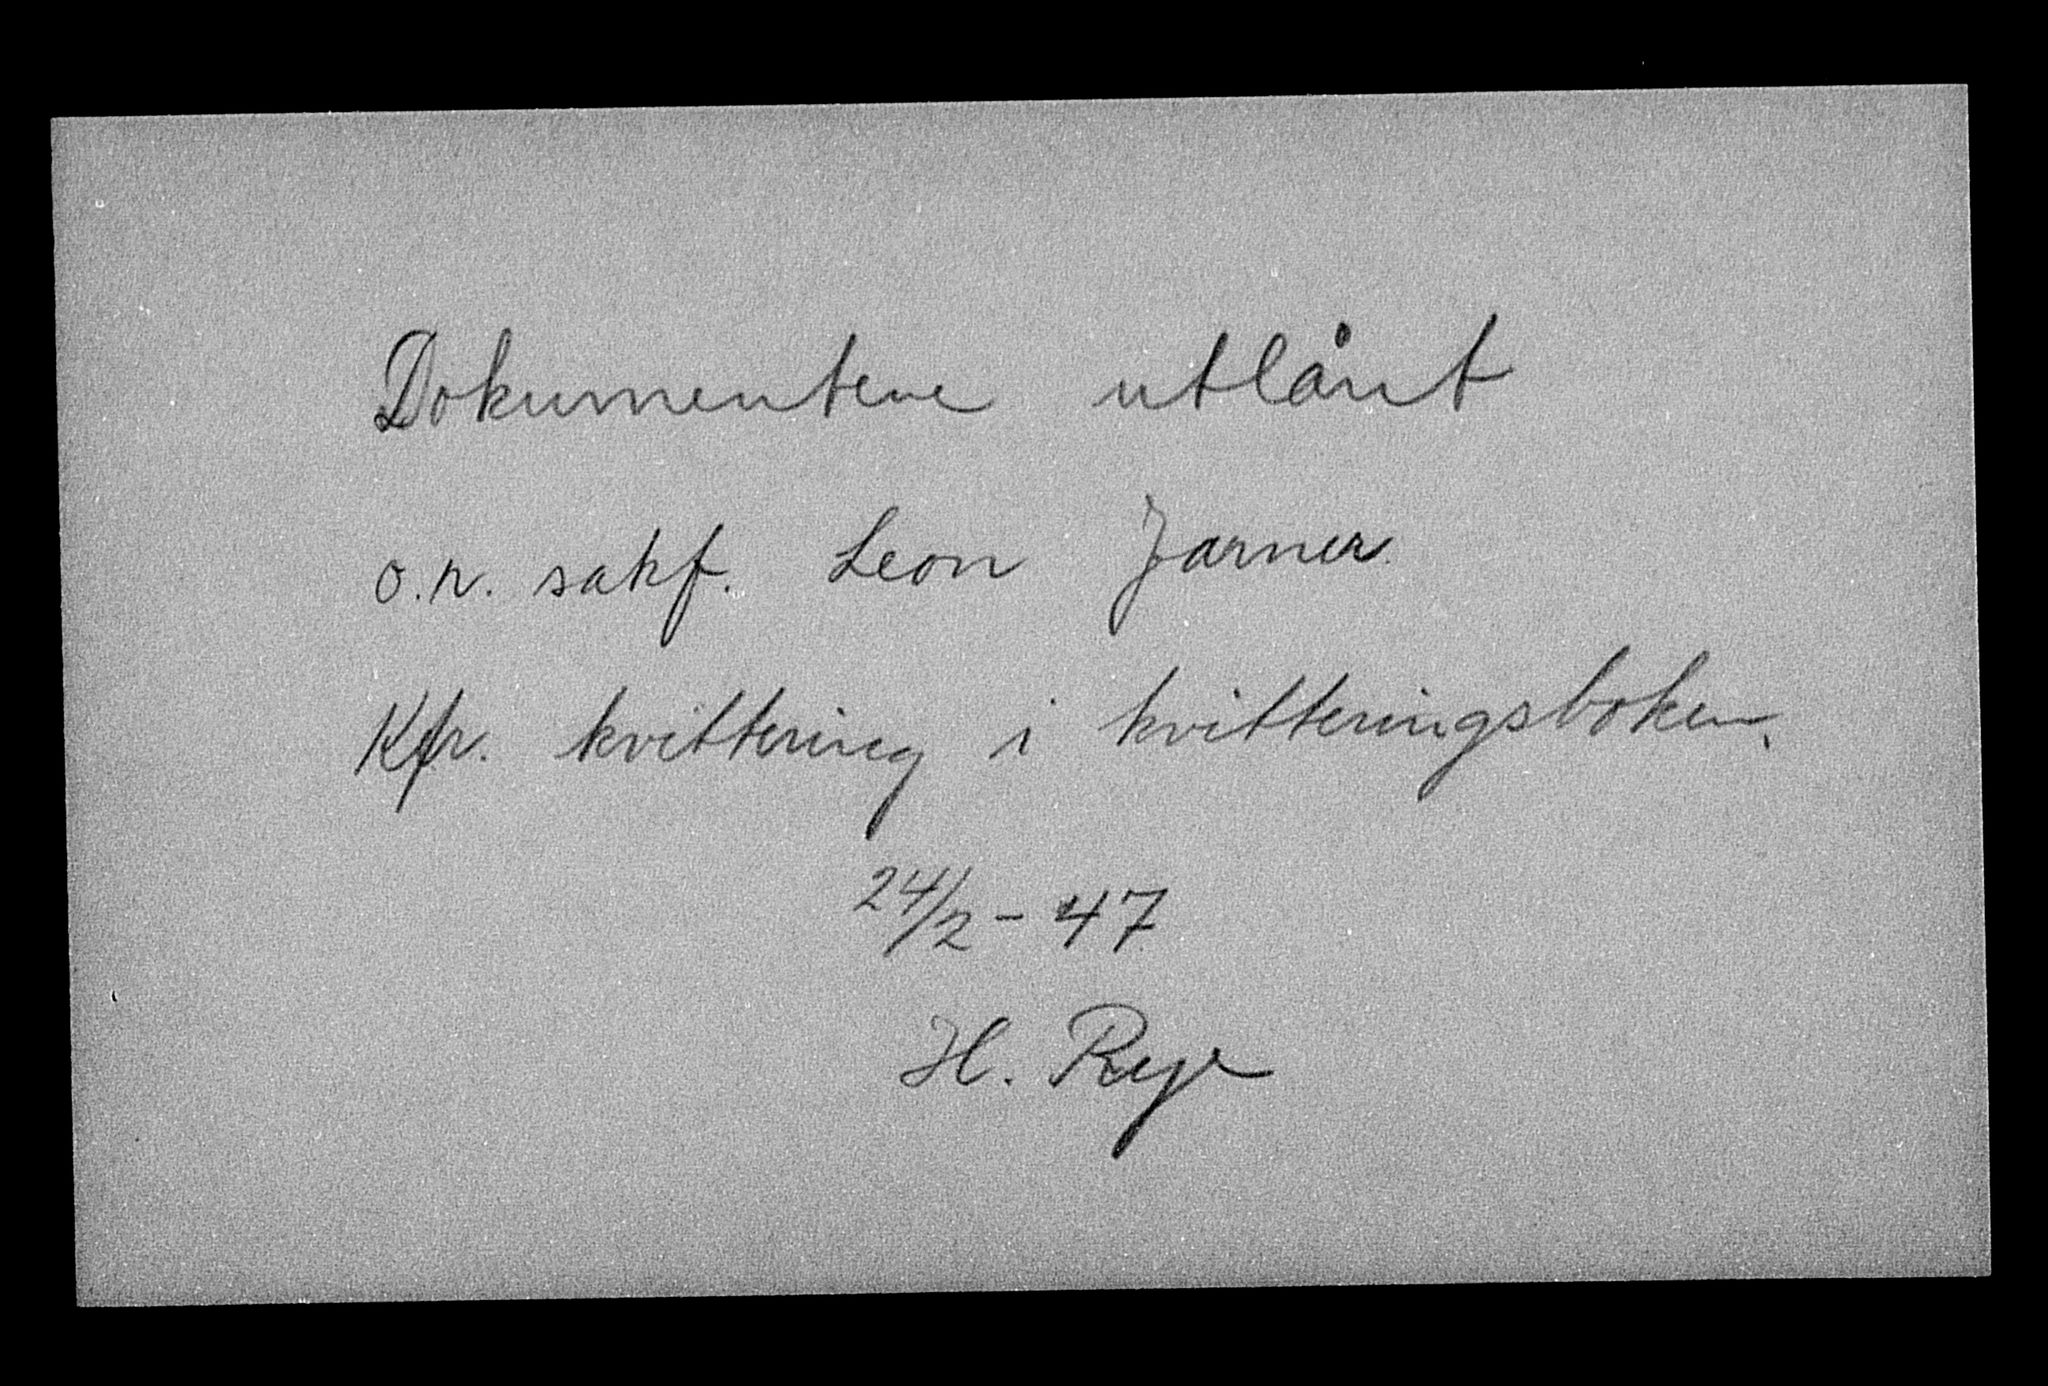 Dokumentene utlånt
o.r. sakf. Leon Jarner.
Kfr. kvittering i kvitteringsboken.
24/2 - 47
H. Rye